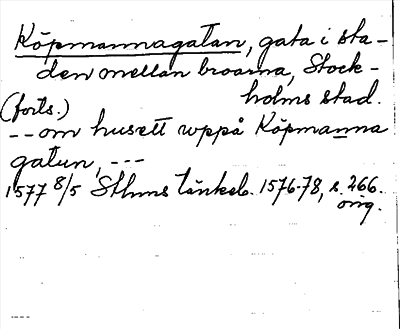 Köpmannagatan, gata i sta-
den mellan broarna, Stock-
holms stad.
(forts.)
-- om husett wppå Köpmanna
gatun, ---
1577 8/5 Sthms tänkeb. 1576-78, s. 266.
orig.